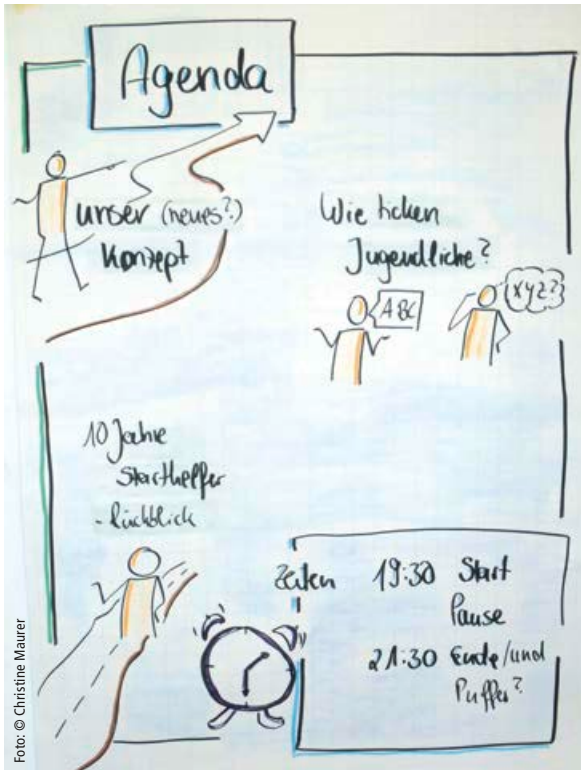 Agenda
unser (neues?)
Konzept
Wie ticken
Jugendliche?
ABC
XYZ?
10 Jahre
Starthelfer
- Rückblick
Zeiten
19:30 Start
Pause
21:30 Ende/und
Puffer?
Foto: © Christine Maurer